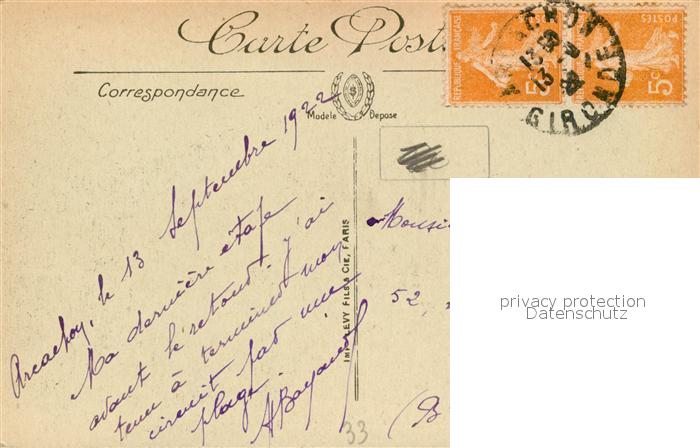 Carte Post
Correspondance
Modèle Déposé
RÉPUBLIQUE FRANÇAISE
POSTES
5c
5c
13
GIRONDE
Arcachon, le 13 Septembre 1922
Ma dernière étape
avant le retour. J'ai
tenu à terminer mon
circuit par une
plage.
IMP. LEVY FILS & CIE, PARIS
Monsi
52,
(B
33
privacy protection
Datenschutz